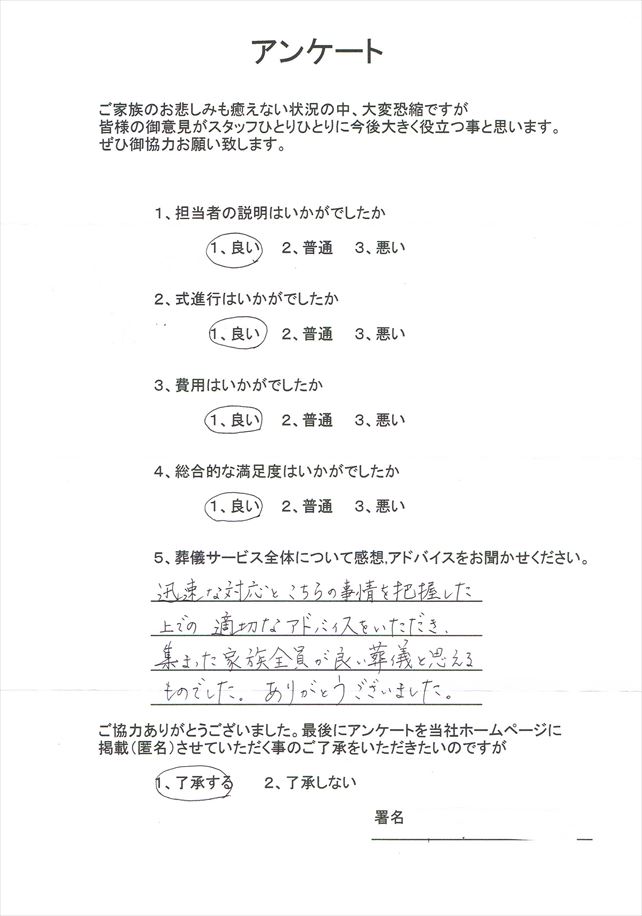 アンケート
ご家族のお悲しみも癒えない状況の中、大変恐縮ですが
皆様の御意見がスタッフひとりひとりに今後大きく役立つ事と思います。
ぜひ御協力お願い致します。
1、担当者の説明はいかがでしたか
1、良い 2、普通 3、悪い
2、式進行はいかがでしたか
1、良い 2、普通 3、悪い
3、費用はいかがでしたか
1、良い 2、普通 3、悪い
4、総合的な満足度はいかがでしたか
1、良い 2、普通 3、悪い
5、葬儀サービス全体について感想,アドバイスをお聞かせください。
迅速な対応とこちらの事情を把握した
上での 適切なアドバイスをいただき、
集まった家族全員が良い葬儀と思える
ものでした。ありがとうございました。
ご協力ありがとうございました。最後にアンケートを当社ホームページに
掲載(匿名)させていただく事のご了承をいただきたいのですが
1、了承する 2、了承しない
署名